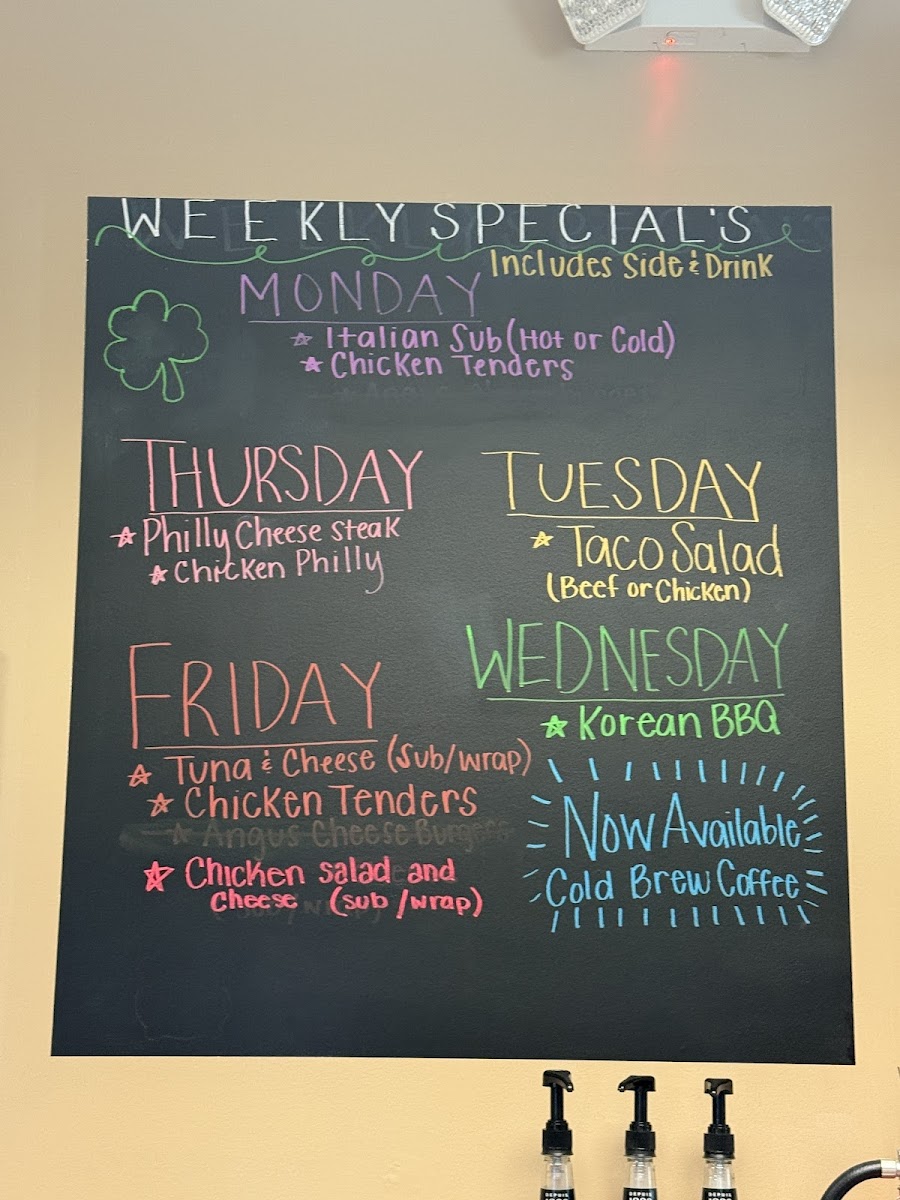 WEEKLY SPECIAL'S
Includes Side & Drink
MONDAY
☆ Italian Sub (Hot or Cold)
☆ Chicken Tenders
THURSDAY
☆ Philly Cheese steak
☆ Chicken Philly
TUESDAY
☆ Taco Salad
(Beef or Chicken)
WEDNESDAY
☆ Korean BBQ
FRIDAY
☆ Tuna & Cheese (Sub/Wrap)
☆ Chicken Tenders
☆ Angus Cheese Burgers
☆ Chicken salad and
cheese (sub/wrap)
Now Available
Cold Brew Coffee
DEPUIS
DEPUIS
DEPUIS